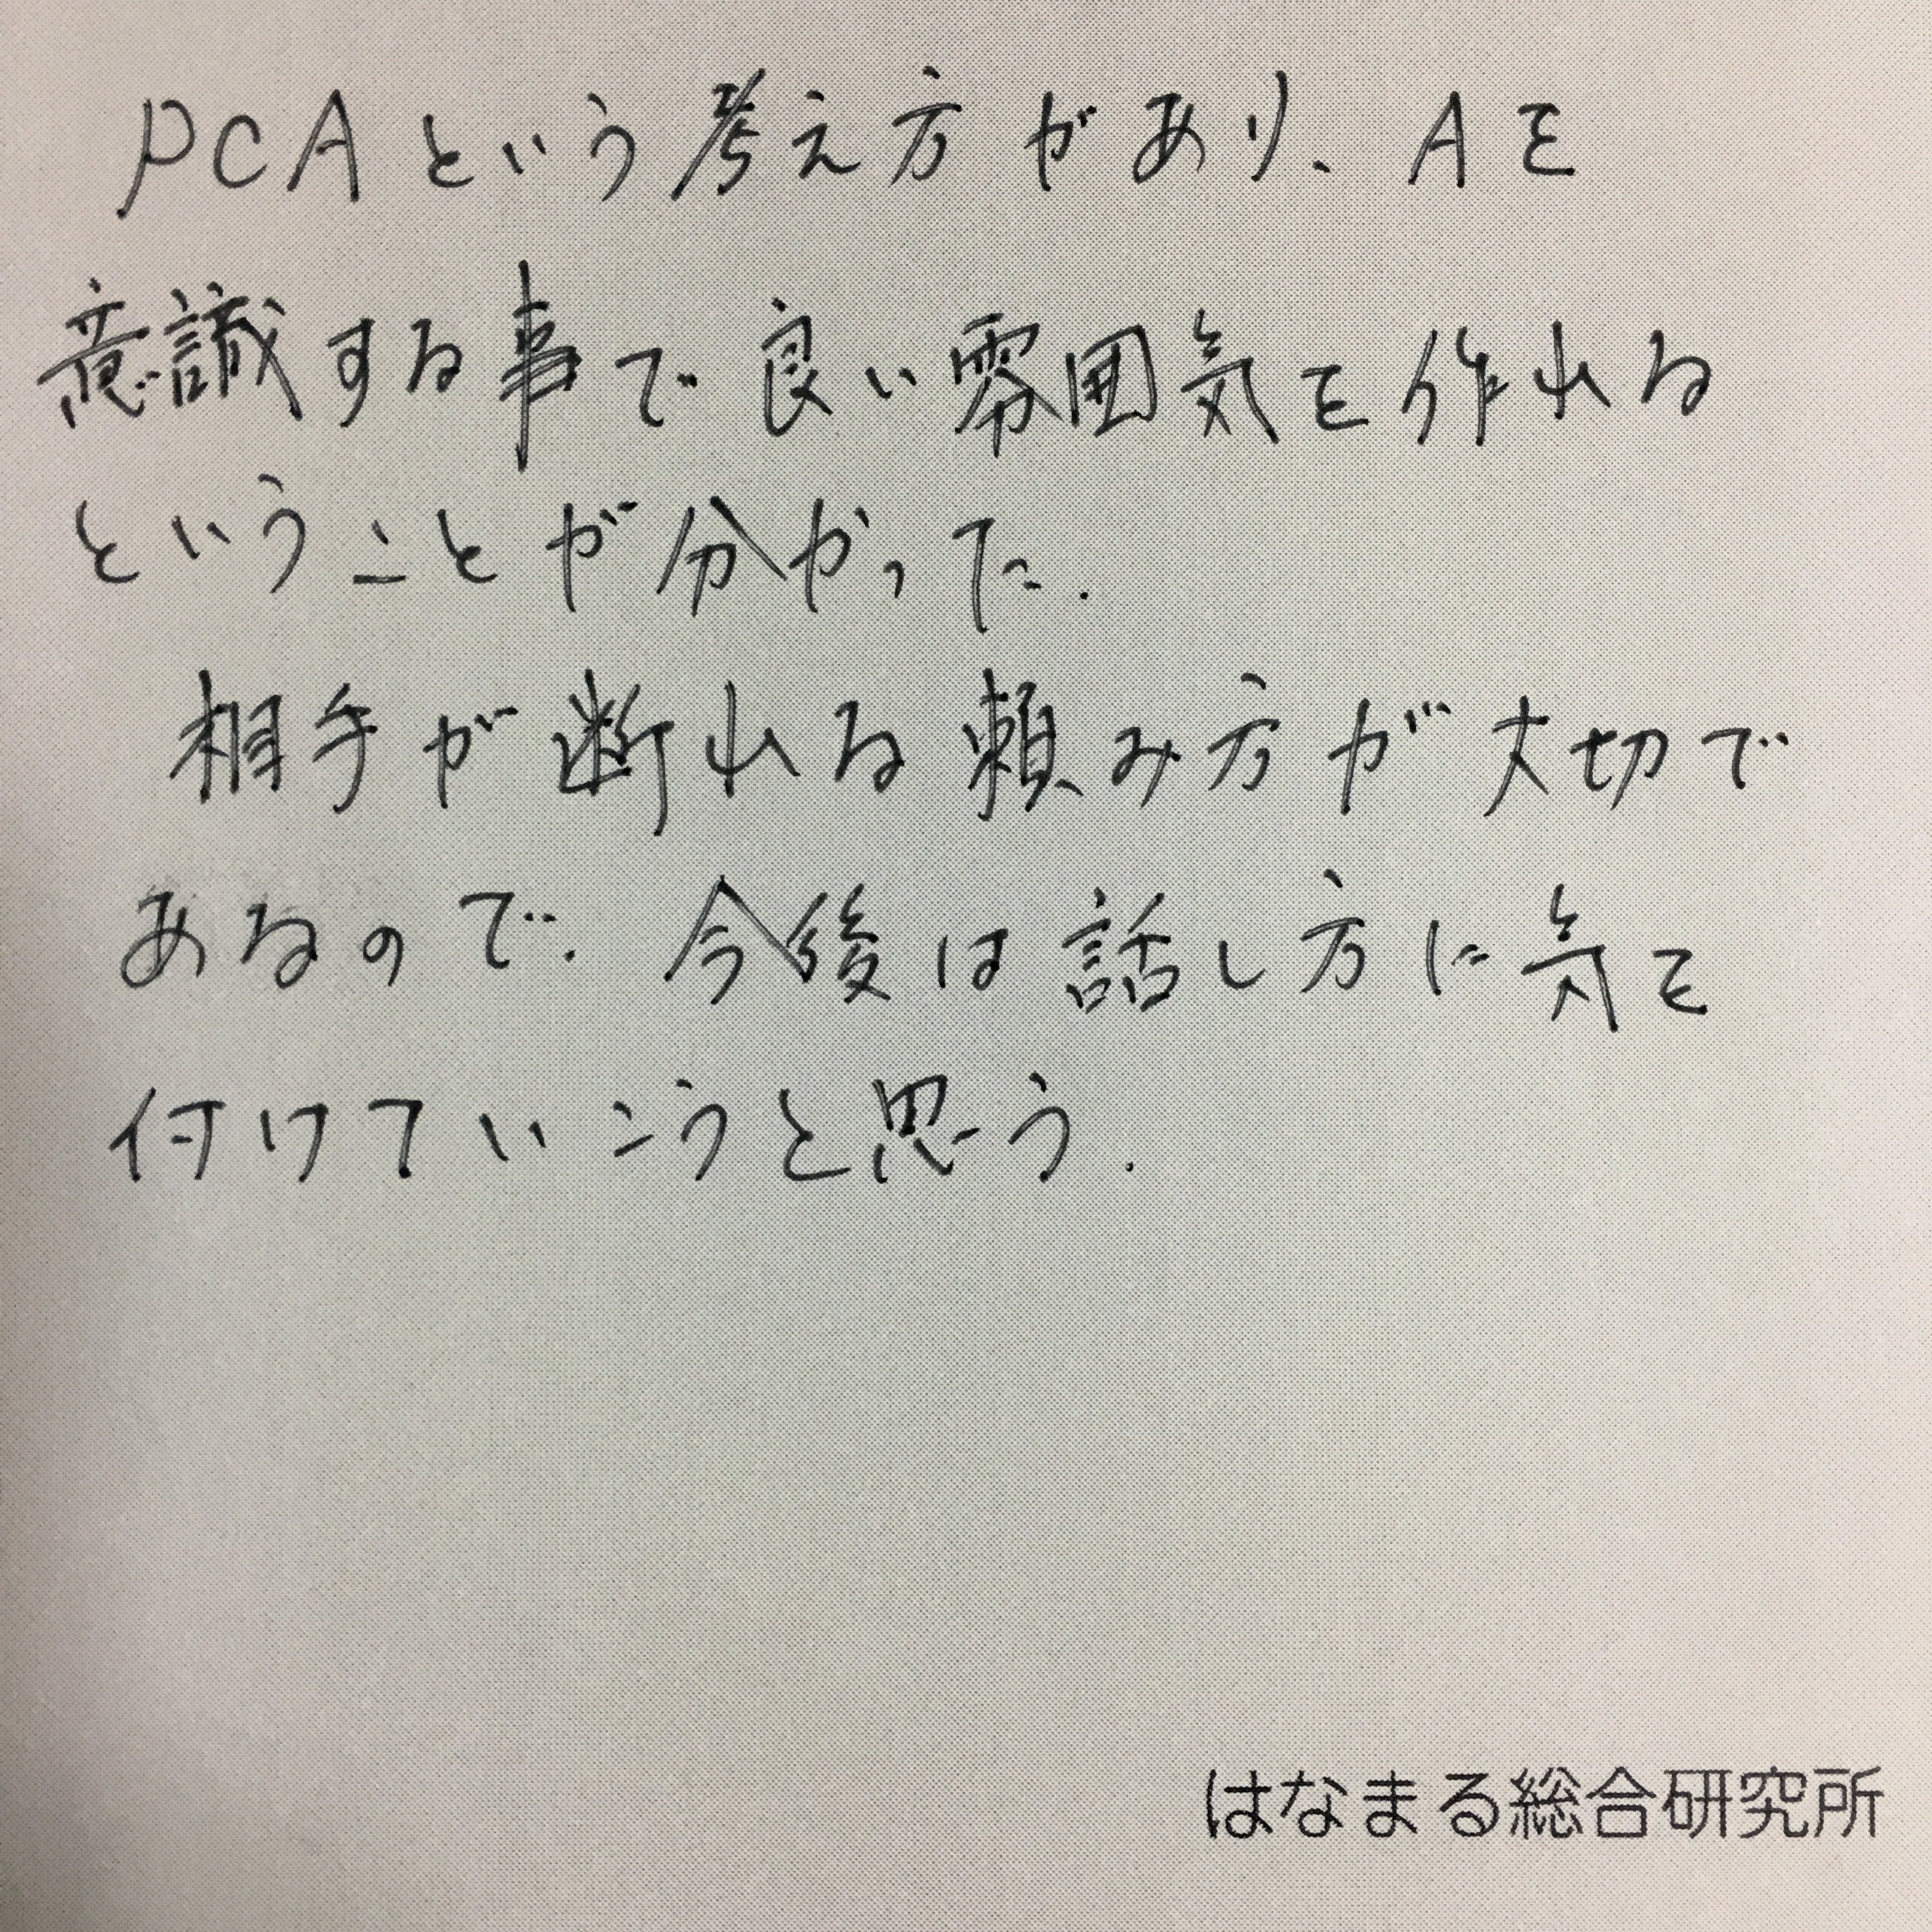 PCAという考え方があり、Aを
意識する事で良い雰囲気を作れる
ということが分かった.
相手が断れる頼み方が大切で
あるので.今後は話し方に気を
付けていこうと思う.
はなまる総合研究所